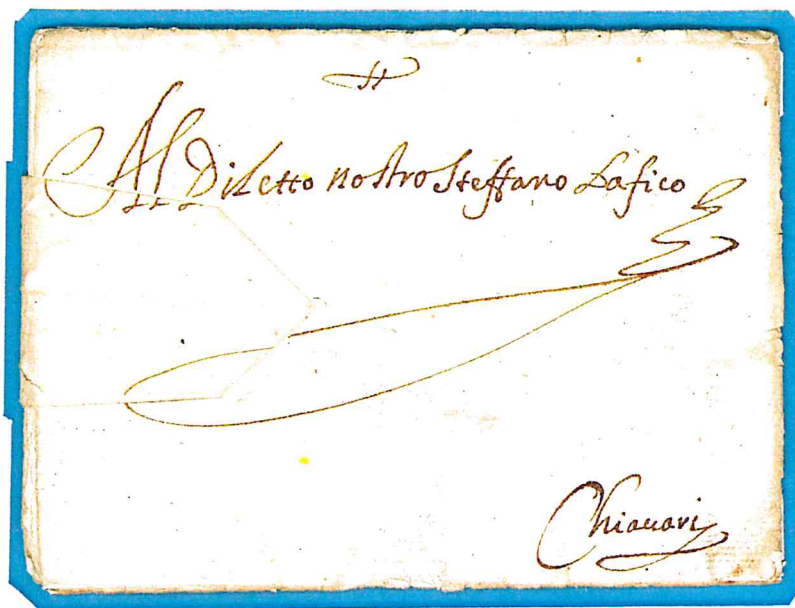 Al Diletto nostro Steffano Lafico
Chiauari